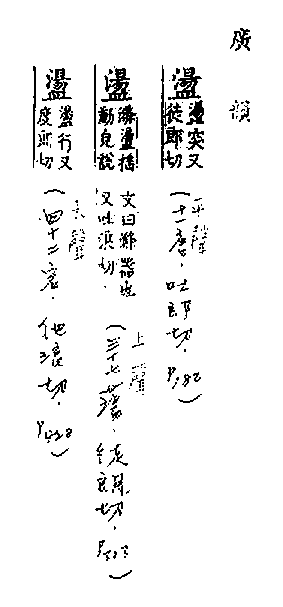 廣韻
盪 盪突又徒郎切
平聲
(十一唐.吐郎切.P.182)
盪 滌盪搖動皃說文曰滌器也又吐浪切.
上聲
(三十七蕩.徒朗切.P.313)
盪 盪行又度郎切
去聲
(四十二宕.他浪切.P.428)